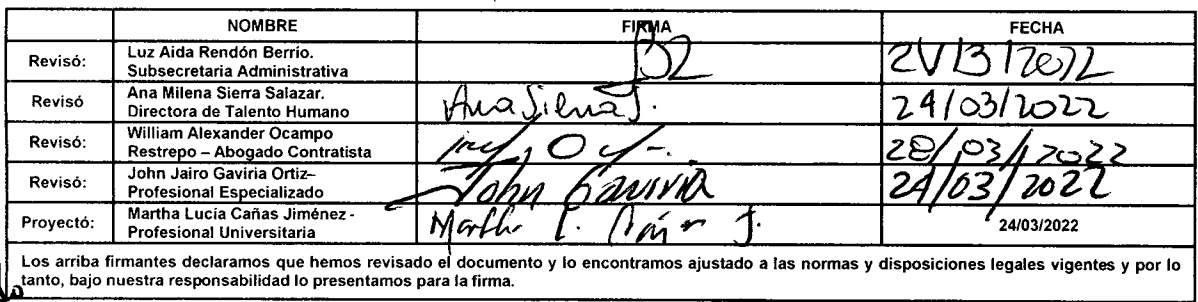 NOMBRE FIRMA FECHA
Revisó: Luz Aida Rendón Berrio.
Subsecretaria Administrativa
Revisó Ana Milena Sierra Salazar.
Directora de Talento Humano Ana Sierra S. 24/03/2022
Revisó: William Alexander Ocampo
Restrepo – Abogado Contratista 28/03/2022
Revisó: John Jairo Gaviria Ortiz–
Profesional Especializado John Gaviria 24/03/2022
Proyectó: Martha Lucía Cañas Jiménez -
Profesional Universitaria Martha L. Cañas J. 24/03/2022
Los arriba firmantes declaramos que hemos revisado el documento y lo encontramos ajustado a las normas y disposiciones legales vigentes y por lo
tanto, bajo nuestra responsabilidad lo presentamos para la firma.